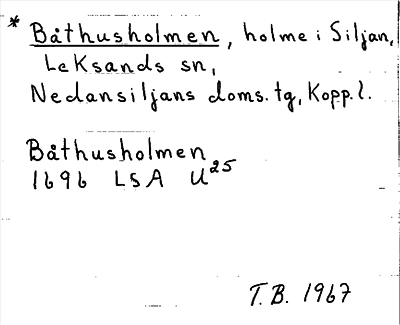 * Båthusholmen, holme i Siljan,
Leksands sn,
Nedansiljans doms. tg, Kopp. l.
Båthusholmen
1696 LSA U25
T.B. 1967